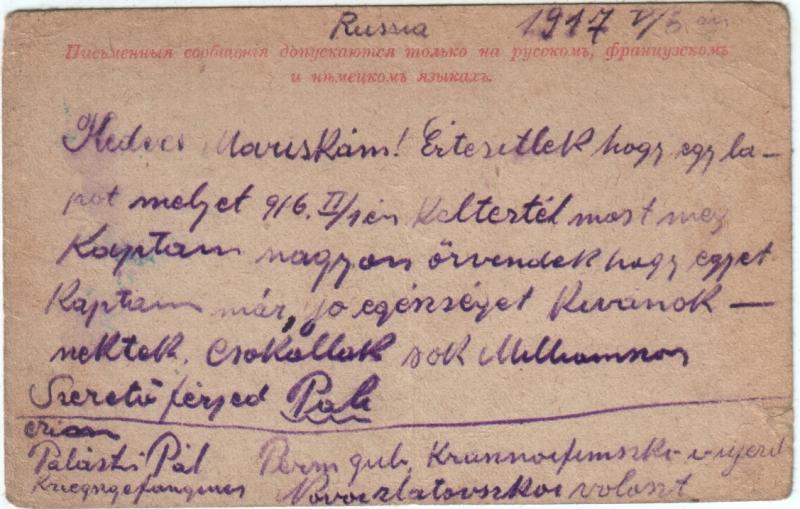 Russia 1917 V/3. án
Письменныя сообщенія допускаются только на русскомъ, французскомъ
и нѣмецкомъ языкахъ.
Kedves Mariskám! Értesitlek hogy egy la-
pot melyet 916. II/1 én keltertél most meg
kaptam nagyon örvendek hogy egyet
kaptam már, jo egészséget kivánok —
nektek. Csokollak sok Milliomszor
Szerető férjed Pali
Palásti Pál Perm gub. Krasnoufimszki-i-ujezd
Kriegsgefangener Novoezlatovszkoi voloszt